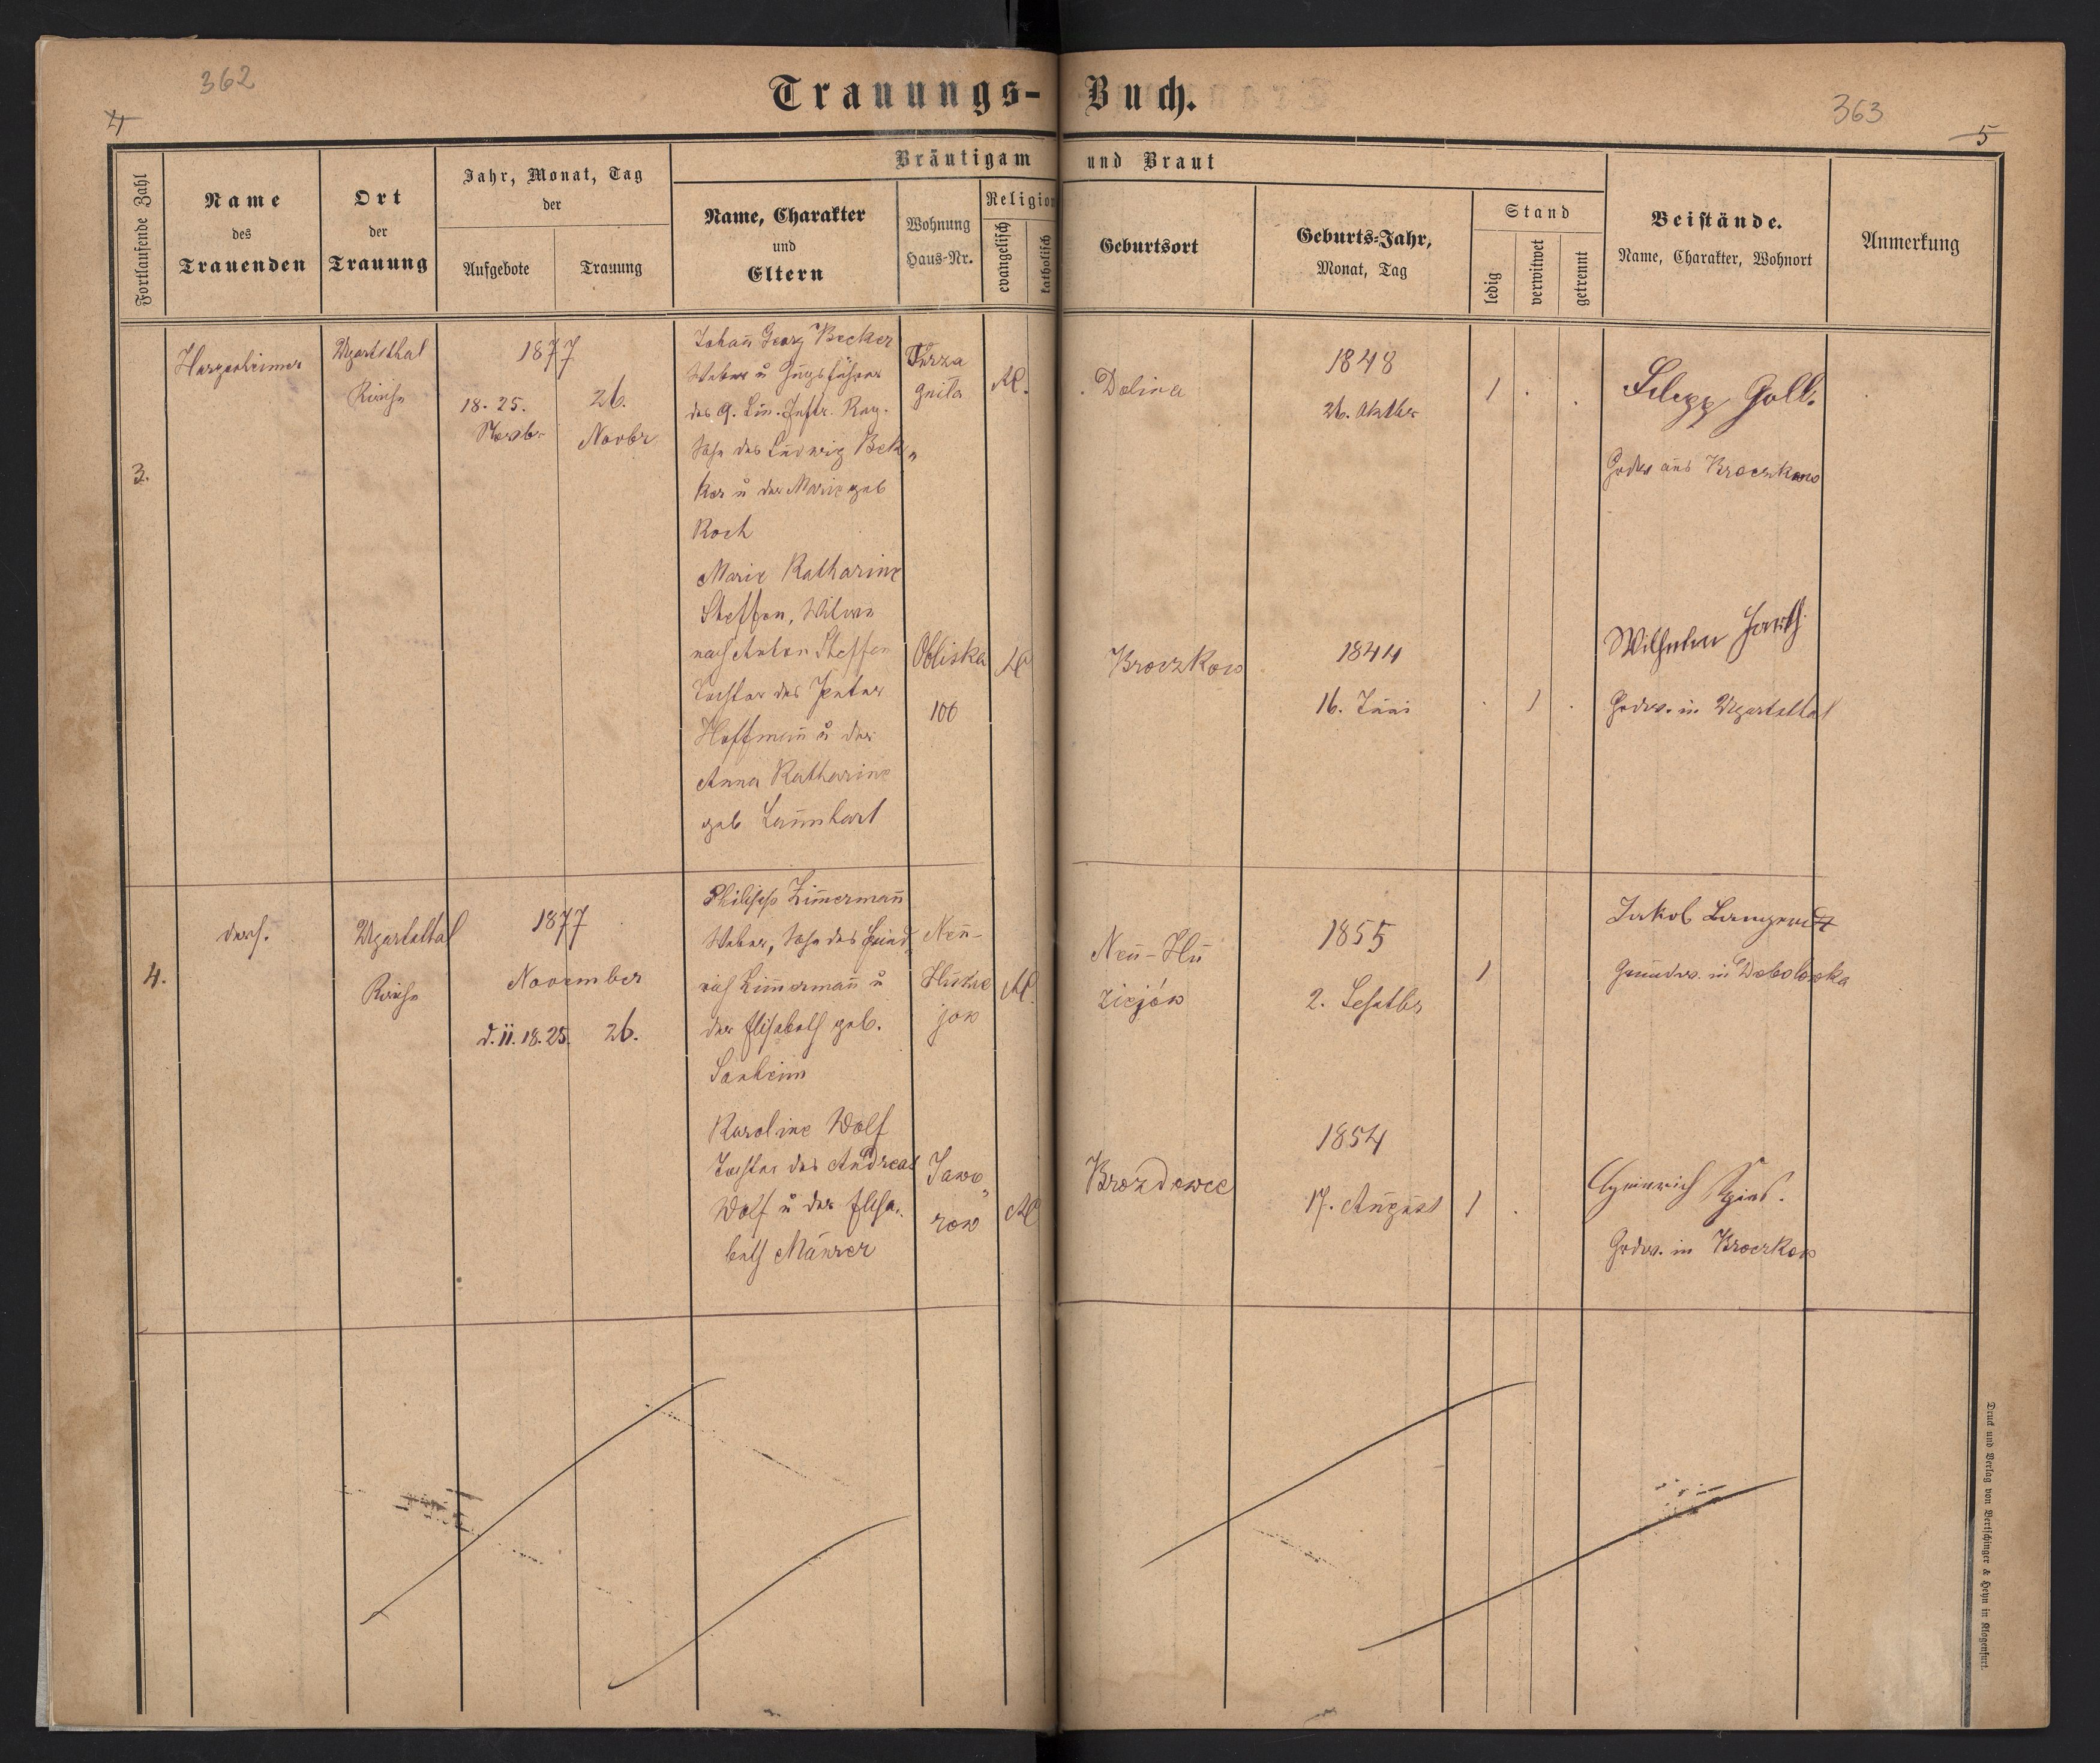 362
363
4
5
Trauungs-Buch.
Fortlaufende Zahl
Name
des
Trauenden
Ort
der
Trauung
Jahr, Monat, Tag
der
Aufgebote
Trauung
Bräutigam und Braut
Name, Charakter
und
Eltern
Wohnung
Haus-Nr.
Religion
evangelisch
katholisch
Geburtsort
Geburts-Jahr,
Monat, Tag
Stand
ledig
verwitwet
getrennt
Beistände.
Name, Charakter, Wohnort
Anmerkung
3.
Ugartsthal
Kirche
1877
18. 25.
Novb.
26.
Novbr
Johan̅ Georg Becker
Weber u
des 9. Lin. Inftr. Reg.
Sohn des Ludwig Bek„
ker u der Marie geb
Koch
Turza
gnila
Dolina
1848
26. Oktbr
1
Filipp Goll.
Grdw aus
Marie Katharine
Steffen, Witwe
nach Anton Steffen
Tochter des Peter
Hoffman̅ u der
Anna Katharine
geb
Obliska
100
Broczkow
1844
16. Juni
1
Wilhelm
Grdw. in Ugartsthal
4.
ders.
Ugartsthal
Kirche
1877
November
d. 11. 18. 25.
26.
Philipp Zim̅erman̅
Weber, Sohn des Heind„
rich Zim̅erman̅ u
der Elisabeth geb.
Neu-
jow
Neu-Hu
ziejów
1855
2. Septbr
1
Jakob
Grundw. in
Karoline Wolf
Tochter des Andreas
Wolf u der Elisa„
beth Maurer
Jawo„
row
Brozdowce
1854
17. August
1
Heinrich
Grdw. in Broczkow
Druck und Verlag von Bertschinger & Heyn in Klagenfurt.